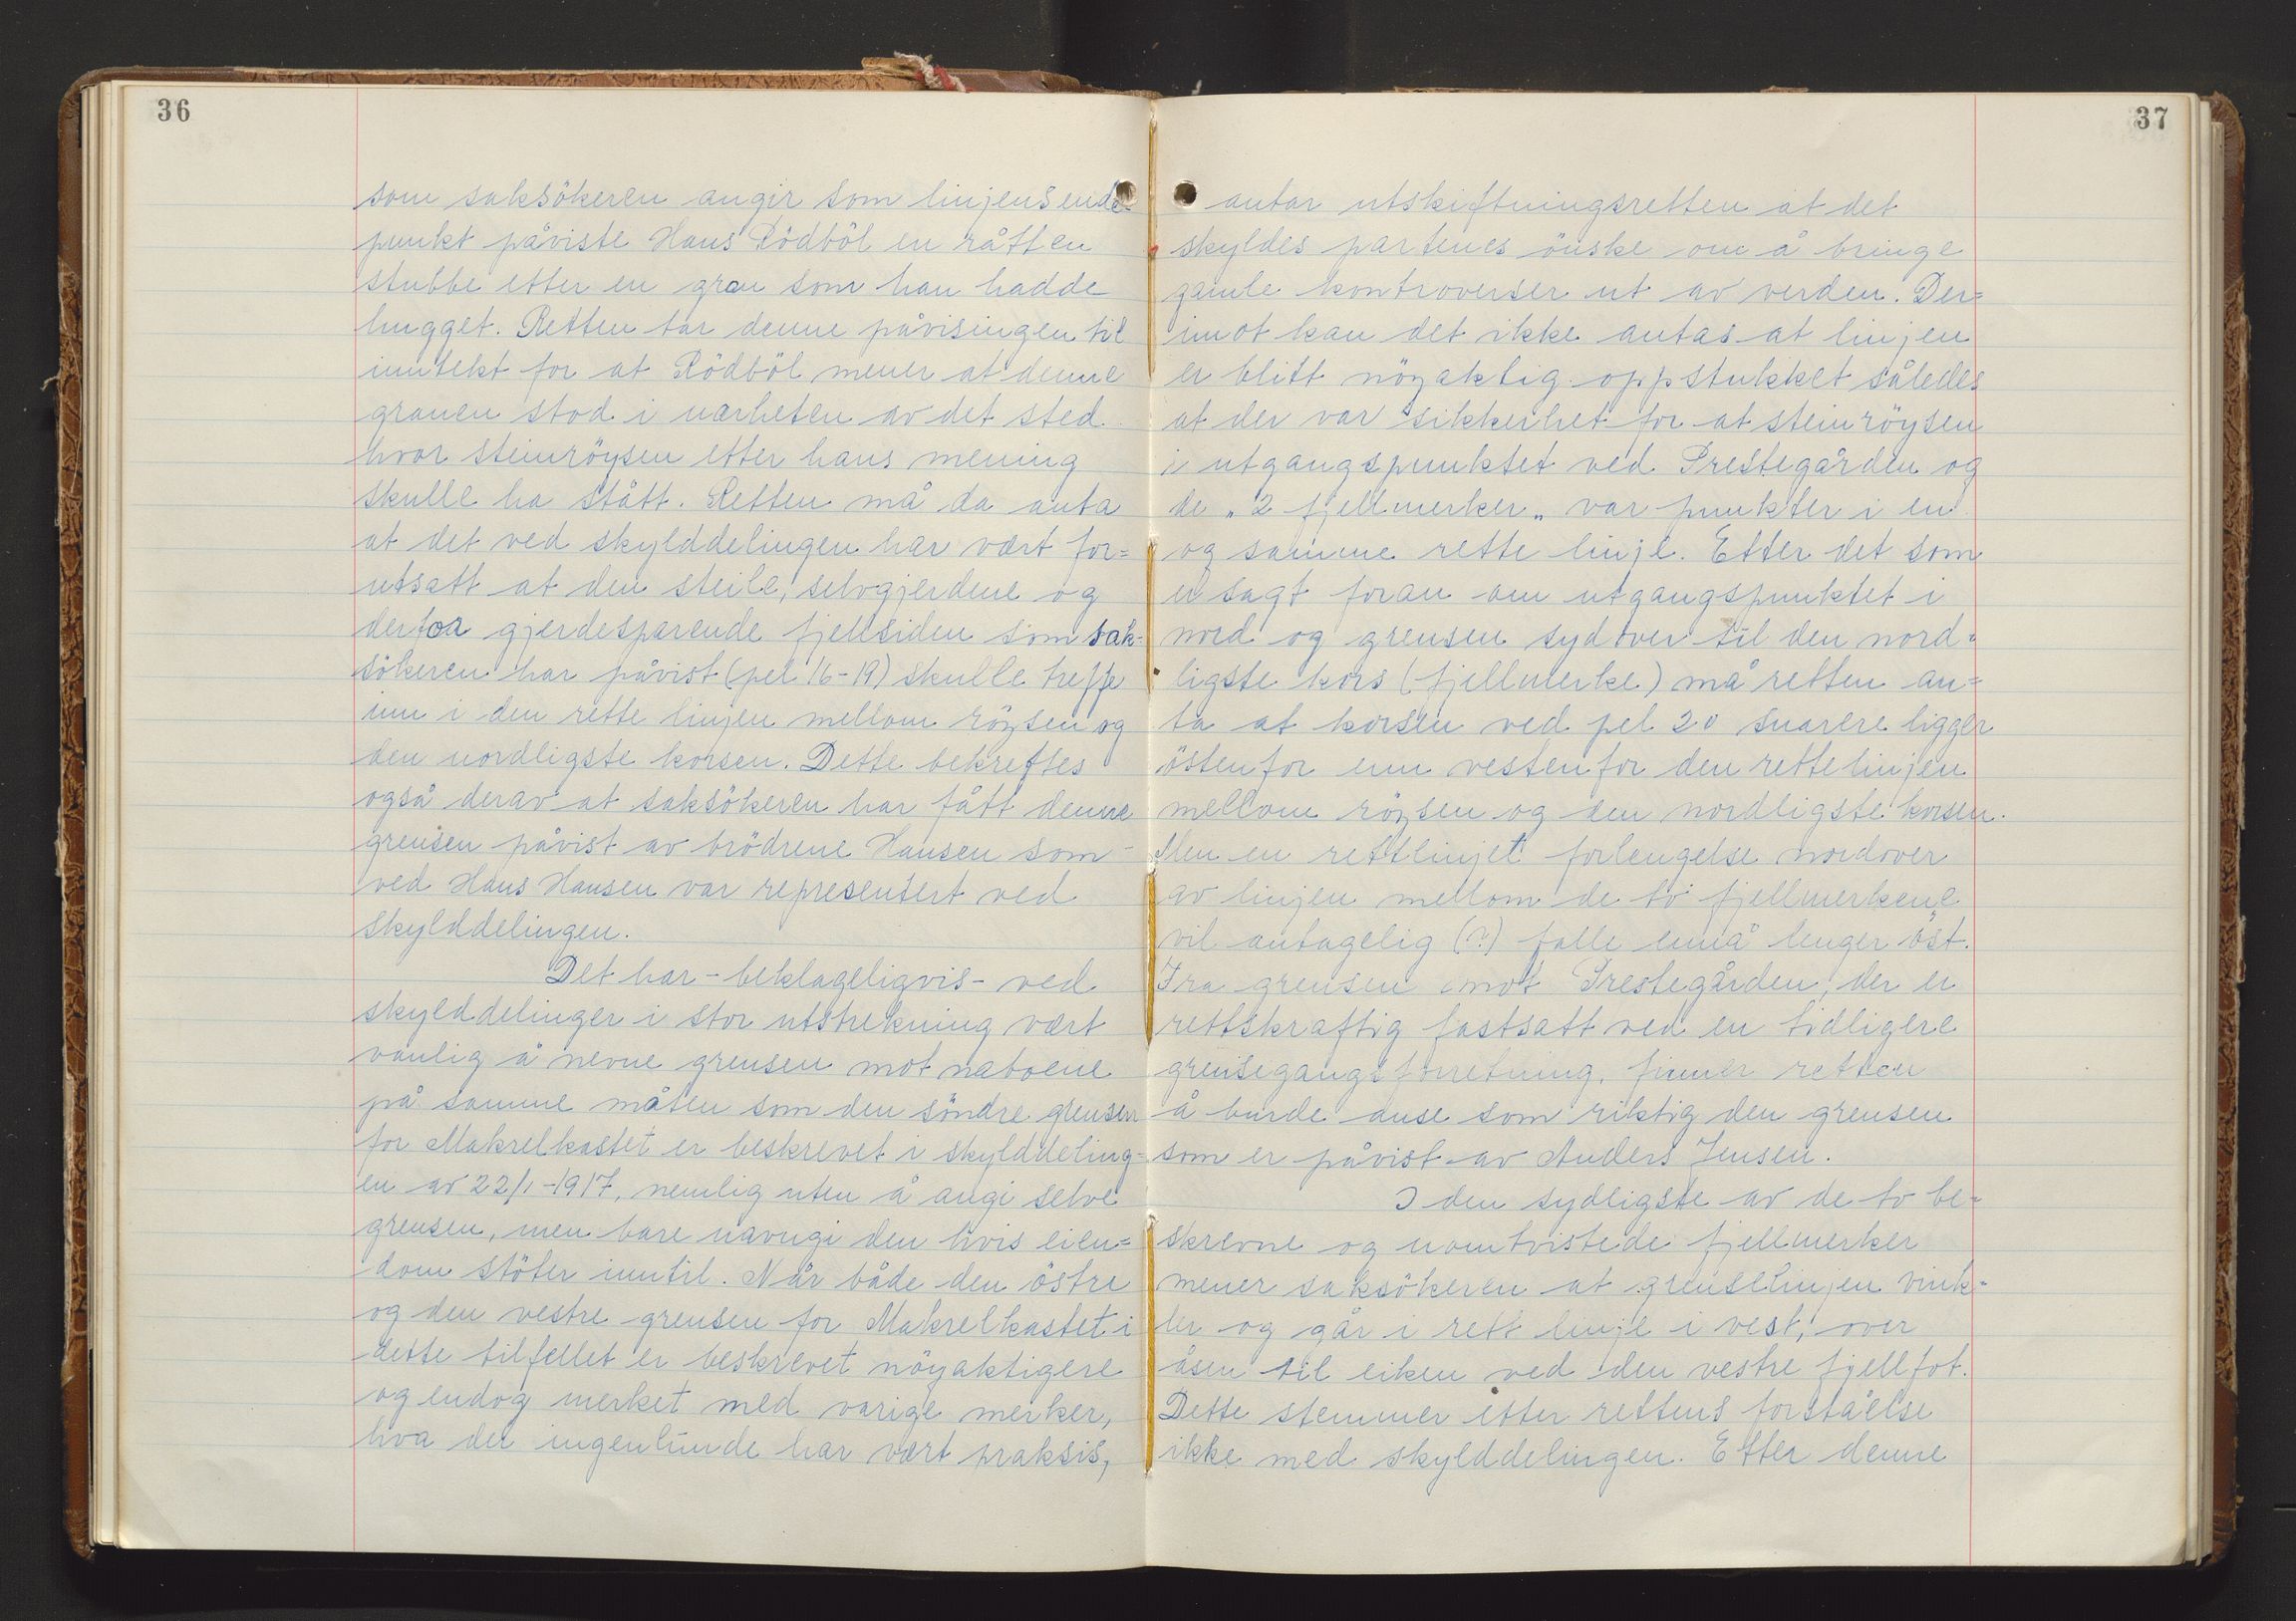 36
som saksökeren angir som linjens ende-
punkt påviste Hans Rödböl en råtten
stubbe etter en gran som han hadde
hugget. Retten tar denne påvisingen til
inntekt for at Rödböl mener at denne
granen stod i nærheten av det sted
hvor steinröysen etter hans mening
skulle ha stått. Retten må da anta
at det ved skylddelingen har vært for=
utsatt at den steile, selvgjerdene og
derfor gjerdesparende fjellsiden som sak-
sökeren har påvist (pel 16-19) skulle treffe
inn i den rette linjen mellom röysen og
den nordligste korsen. Dette bekreftes
også derav at saksökeren har fått denne
grensen påvist av brödrene Hansen som
ved Hans Hansen var representert ved
skylddelingen.
Det har - beklageligvis - ved
skylddelinger i stor utstrekning vært
vanlig å nevne grensen mot naboene
på samme måten som den söndre grensen
for Makrelkastet er beskrevet i skylddeling=
en av 22/1-1917, nemlig uten å angi selve
grensen, men bare navngi den hvis eien=
dom stöter inntil. Når både den östre
og den vestre grensen for Makrelkastet i
dette tilfellet er beskrevet nöyaktigere
og endog merket med varige merker,
hva der ingenlunde har vært praksis,
37
antar utskiftningsretten at det
skyldes partenes önske om å bringe
gamle kontroverser ut av verden. Der=
imot kan det ikke antas at linjen
er blitt nöyaktig oppstukket således
at der var sikkerhet for at steinröysen
i utgangspunktet ved Prestegården og
de „2 fjellmerker„ var punkter i en
og samme rette linje. Etter det som
er sagt foran om utgangspunktet i
nord og grensen sydover til den nord=
ligste kors (fjellmerke) må retten an=
ta at korsen ved pel 20 snarere ligger
östenfor enn vestenfor den rette linjen
mellom röysen og den nordligste korsen.
Men en rettlinjet forlengelse nordover
av linjen mellom de to fjellmerkene
vil antagelig (?) falle ennå lenger öst.
Fra grensen mot Prestegården, der er
rettskraftig fastsatt ved en tidligere
grensegangsforretning, finner retten
å burde anse som riktig den grensen
som er påvist av Anders Jensen.
I den sydligste av de to be=
skrevne og uomtvistede fjellmerker
mener saksökeren at grenselinjen vink=
ler og går i rett linje i vest, over
åsen til eiken ved den vestre fjellfot.
Dette stemmer etter rettens forståelse
ikke med skylddelingen. Etter denne